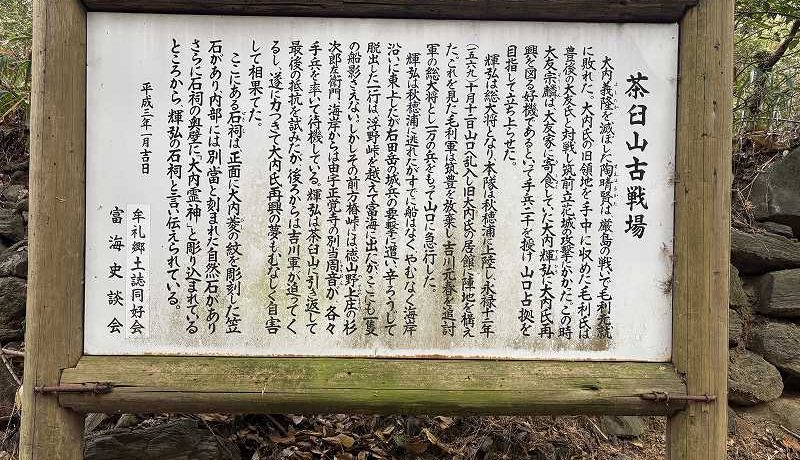 茶臼山古戦場
大内義隆を滅ぼした陶晴賢は、厳島の戦いで毛利元就
に敗れた。大内氏の旧領地を手中に収めた毛利氏は
豊後の大友氏と対戦し筑前立花城攻撃にかかった。この時
大友宗麟は、大友家に寄食していた大内輝弘に「大内氏再
興を図る好機であるといって手兵二千を授け山口占拠を
目指して立ち上らせた。
輝弘は総大将となり本隊は秋穂浦に上陸し永禄十二年
(一五六九)十月十二日山口へ乱入し旧大内氏の居館に陣地を構え
た。これを見た毛利軍は筑豊を放棄し吉川元春を追討
軍の総大将とし一万の兵をもって山口に急行した。
輝弘は秋穂浦に逃れたがすでに船はなく、やむなく海岸
沿いに東上したが右田岳の城兵の要撃に遭い、辛うじて
脱出した一行は、浮野峠を越えて富海に出たが、ここにも一隻
の船影さえない。しかしその前方椿峠には徳山野上庄の杉
次郎左衛門、海岸からは由宇正覚寺の別当周音が、各々
手兵を率いて待機している。輝弘は茶臼山に引き返して
最後の抵抗を試みたが、後ろからは吉川軍が迫ってく
るし、遂に力つきて大内氏再興の夢もむなしく自害
して相果てた。
ここにある石祠は、正面に大内菱の紋を彫刻した笠
石があり、内部には別當と刻まれた自然石があり
さらに石祠の奥壁に「大内霊神」と彫り込まれている
ところから、輝弘の石祠と言い伝えられている。
平成三年一月吉日
牟礼郷土誌同好会
富海史談会